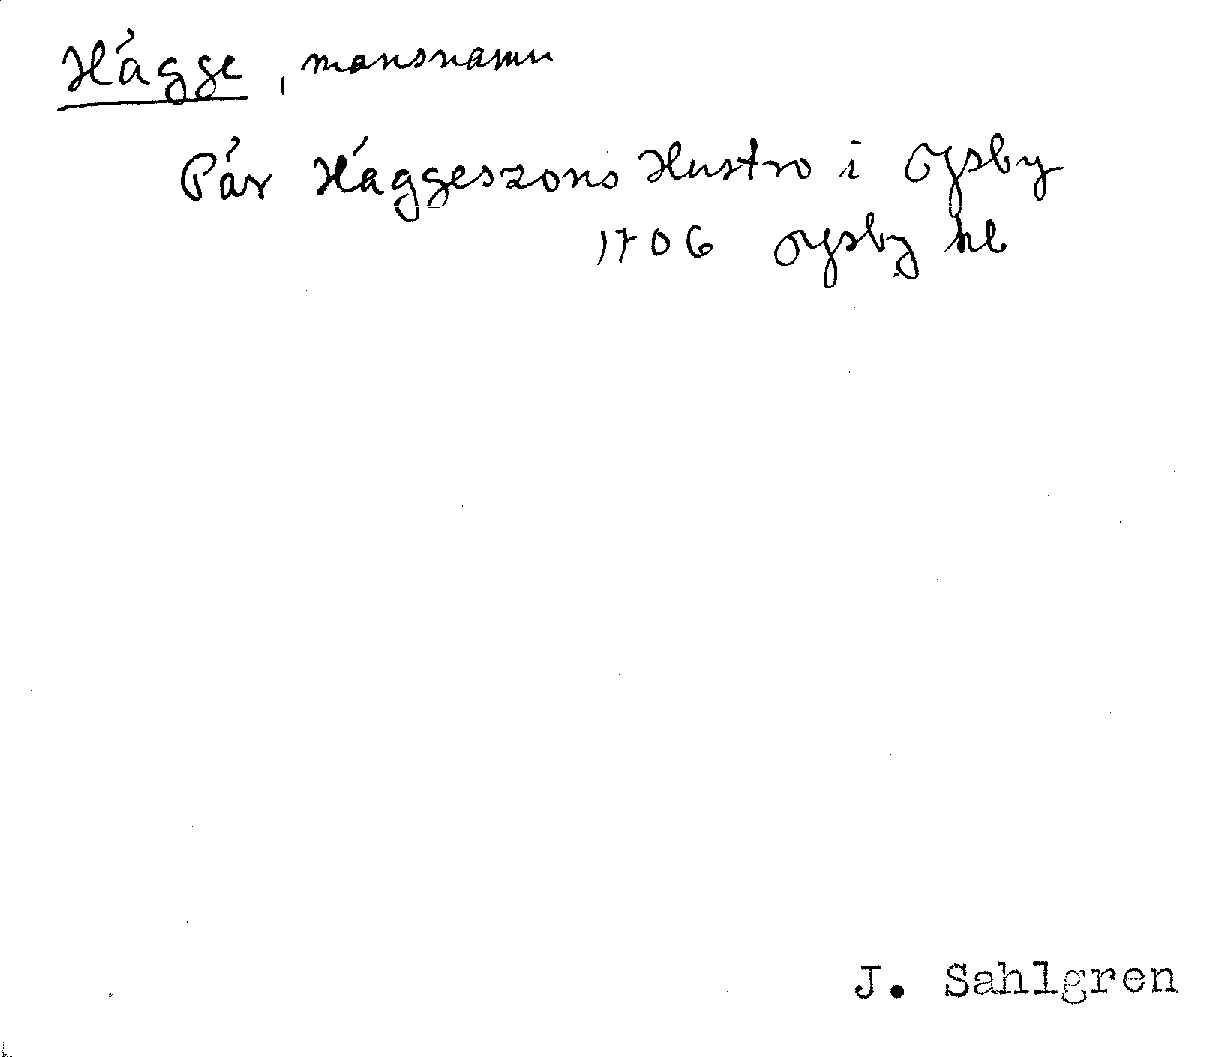 Hágge, mansnamn
Pár Hággeszons Hustro i Öysby
1706 Öysby kb
J. Sahlgren